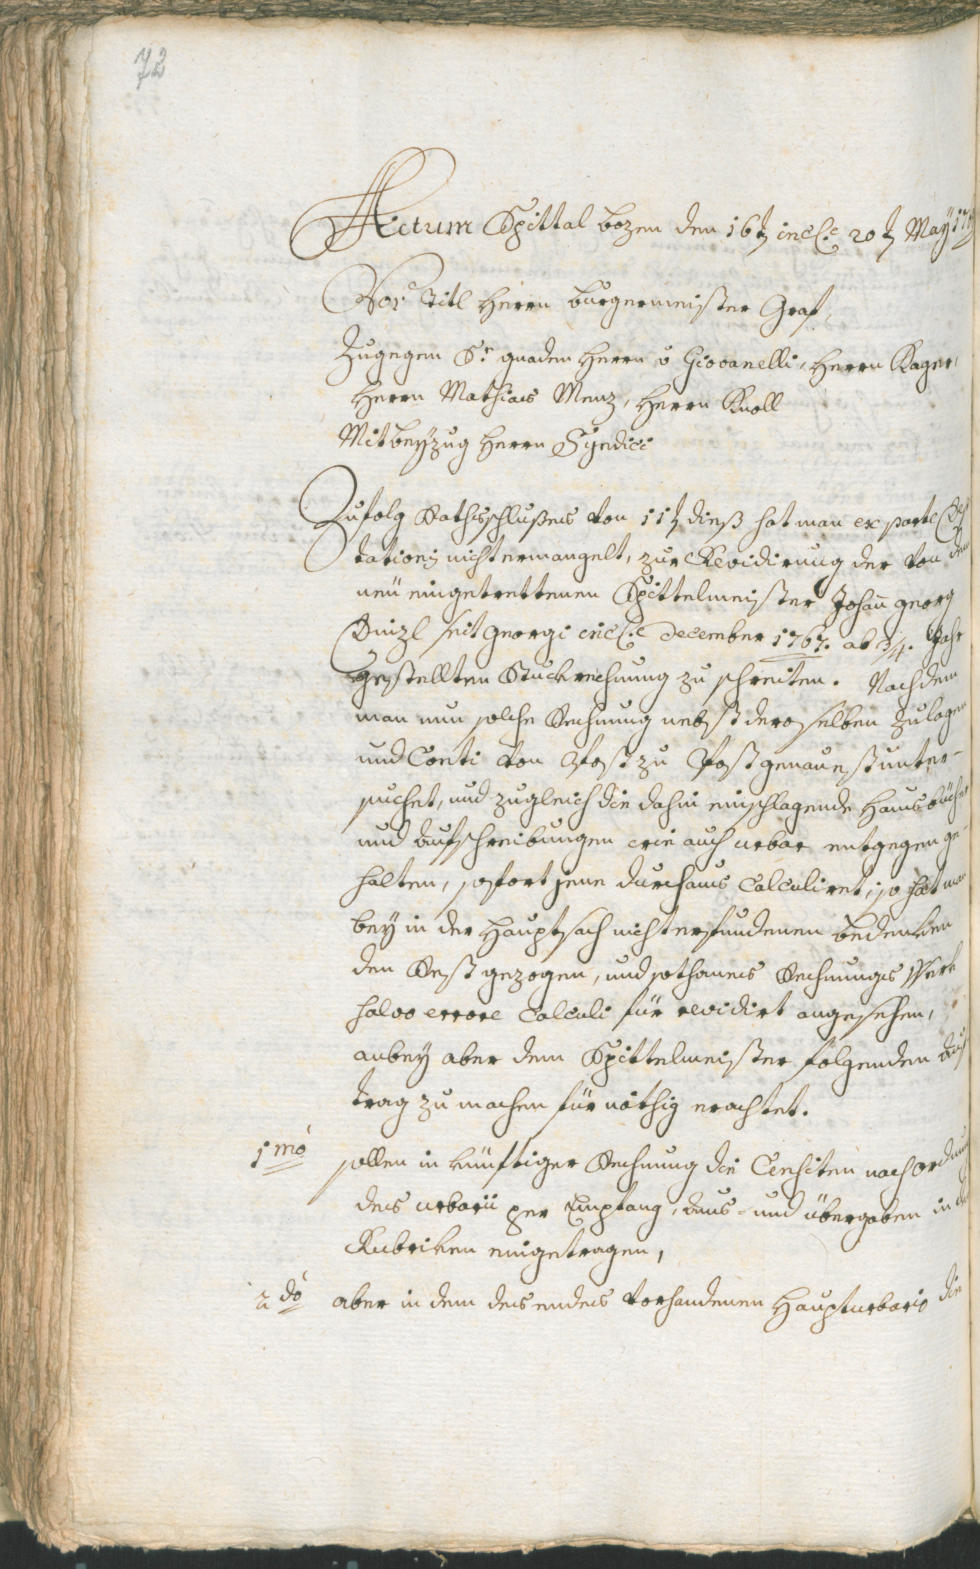 72
Actum Spittal Bozen den 16t incl:e 20t May 17
Vor Titl Herrn Burgermeister Graf,
Zugegen Sr gnaden Herrn v Giovanelli, Herrn Kager,
Herrn Mathias Menz, Herrn Knoll
Mit beÿzug Herrn Syndici
Zufolg Rathsschlußes von 11t dieß hat man ex parte
tationis nicht ermangelt, zur Revidirung der von dem
neü eingetrettenen Spittelmeister Johan̄ georg
Einzl seit georgi incl:e December 1767. ab 3/4. Jahr
gestellten Stuckrechnung zu schreiten. Nachdem
man nun solche Rechnung nebst derselben Zulagen
und Conti von Post zu Post genauest unter-
suchet, und zugleich die dahin einschlagende Hausbücher
und Aufschreibungen wie auch urbar entgegen ge-
halten, sofort jene durchaus Calculiret; so hat man
bey in der Hauptsach nicht erfundenen bedenken
den Rest gezogen, und sothanes Rechnungs Werk
salvo errore Calculi für revidirt angesehen,
anbey aber dem Spittelmeister folgenden Auf
trag zu machen für nöthig erachtet.
1mo sollen in künftiger Rechnung die Censiten nach ordnung
des urbarii per Empfang, Aus- und übergaben in
Rubriken eingetragen,
2do aber in dem des endes vorhandenen Haupturbario die